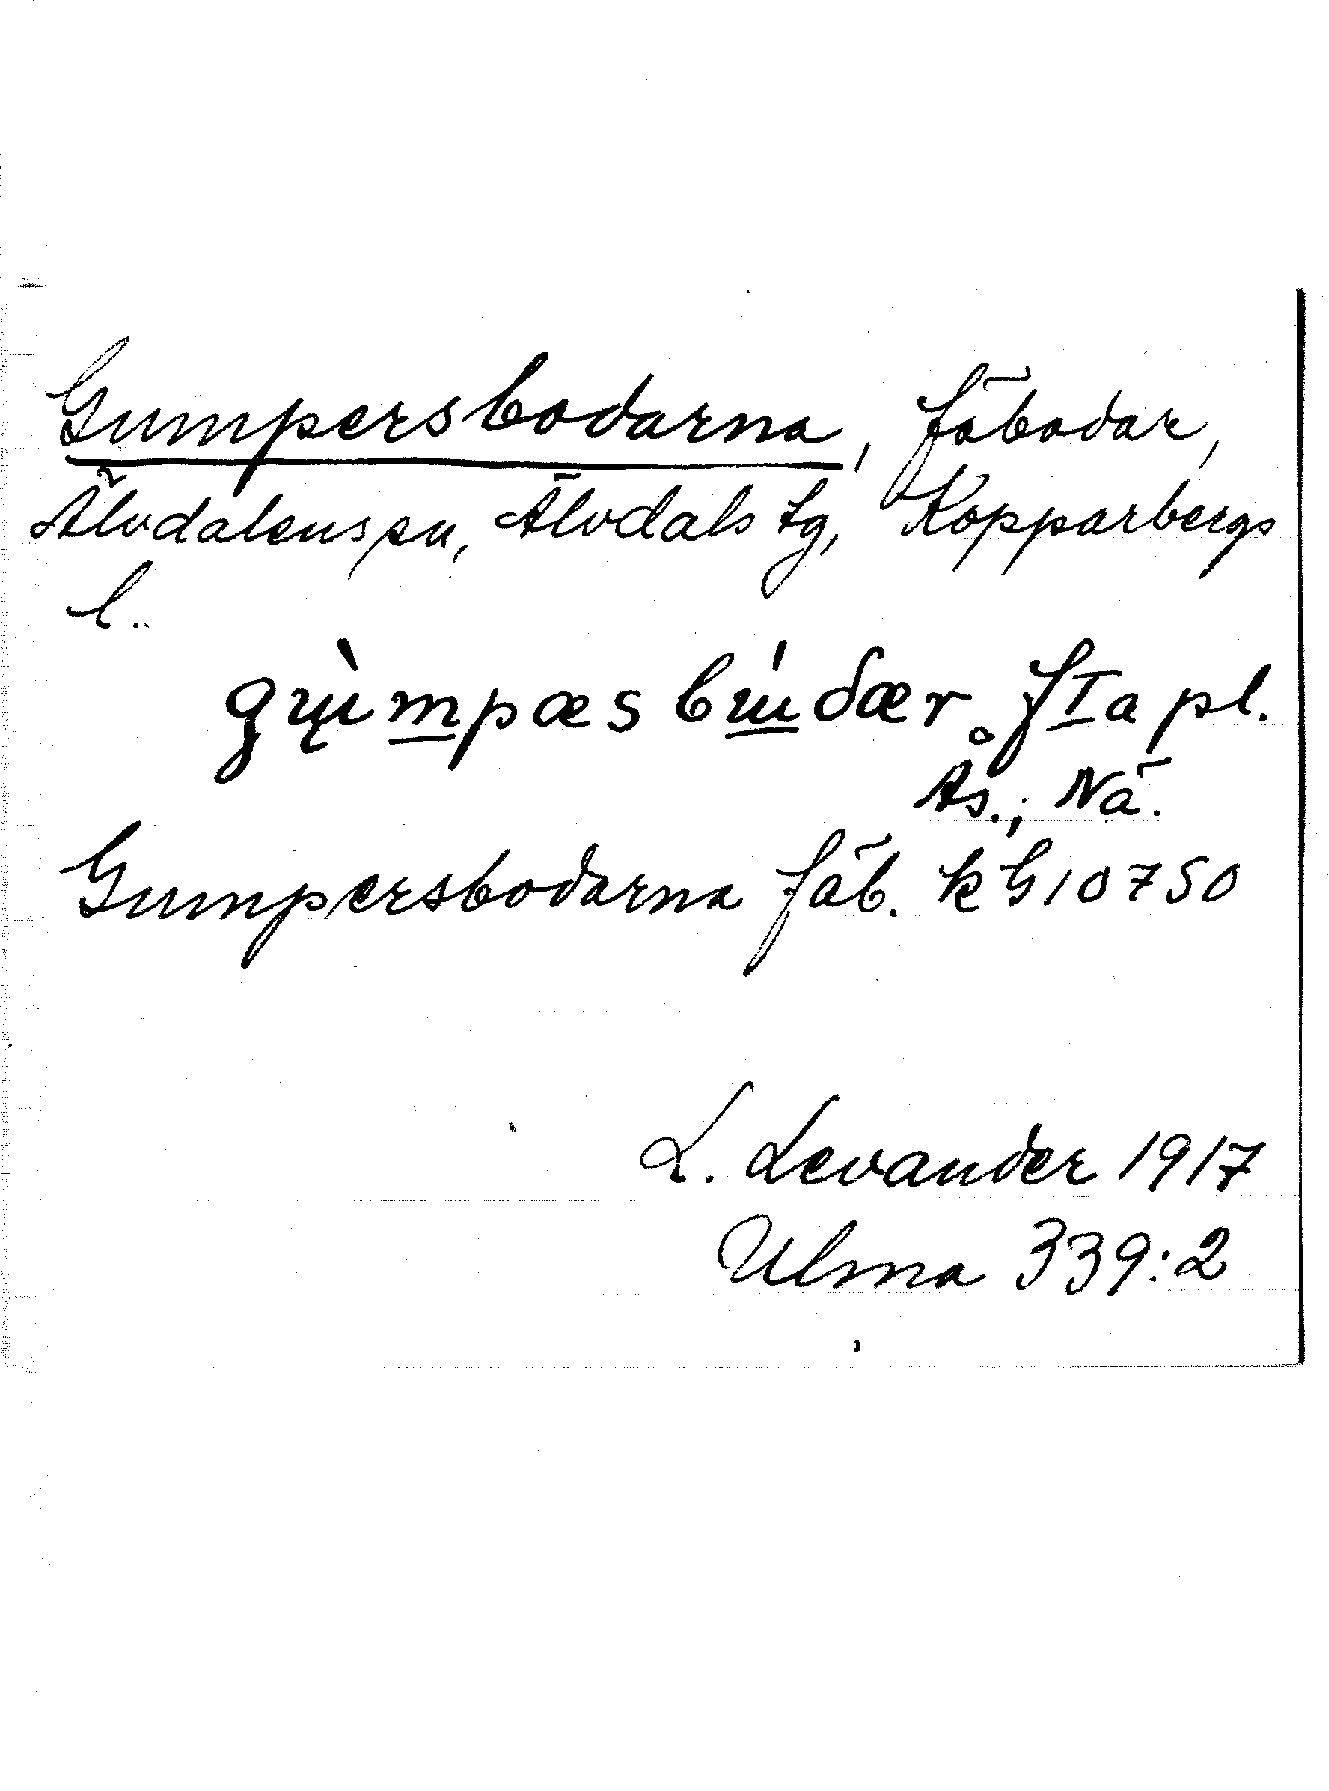 Gumpersbodarna, fäbodar,
Älvdalens sn, Älvdals tg, Kopparbergs
l.
gɯ̨̀m̲pæsbɯ̲́dær. f I a pl.
Ås.; Nä.
Gumpersbodarna fäb. kG10750
L. Levander 1917
Ulma 339:2